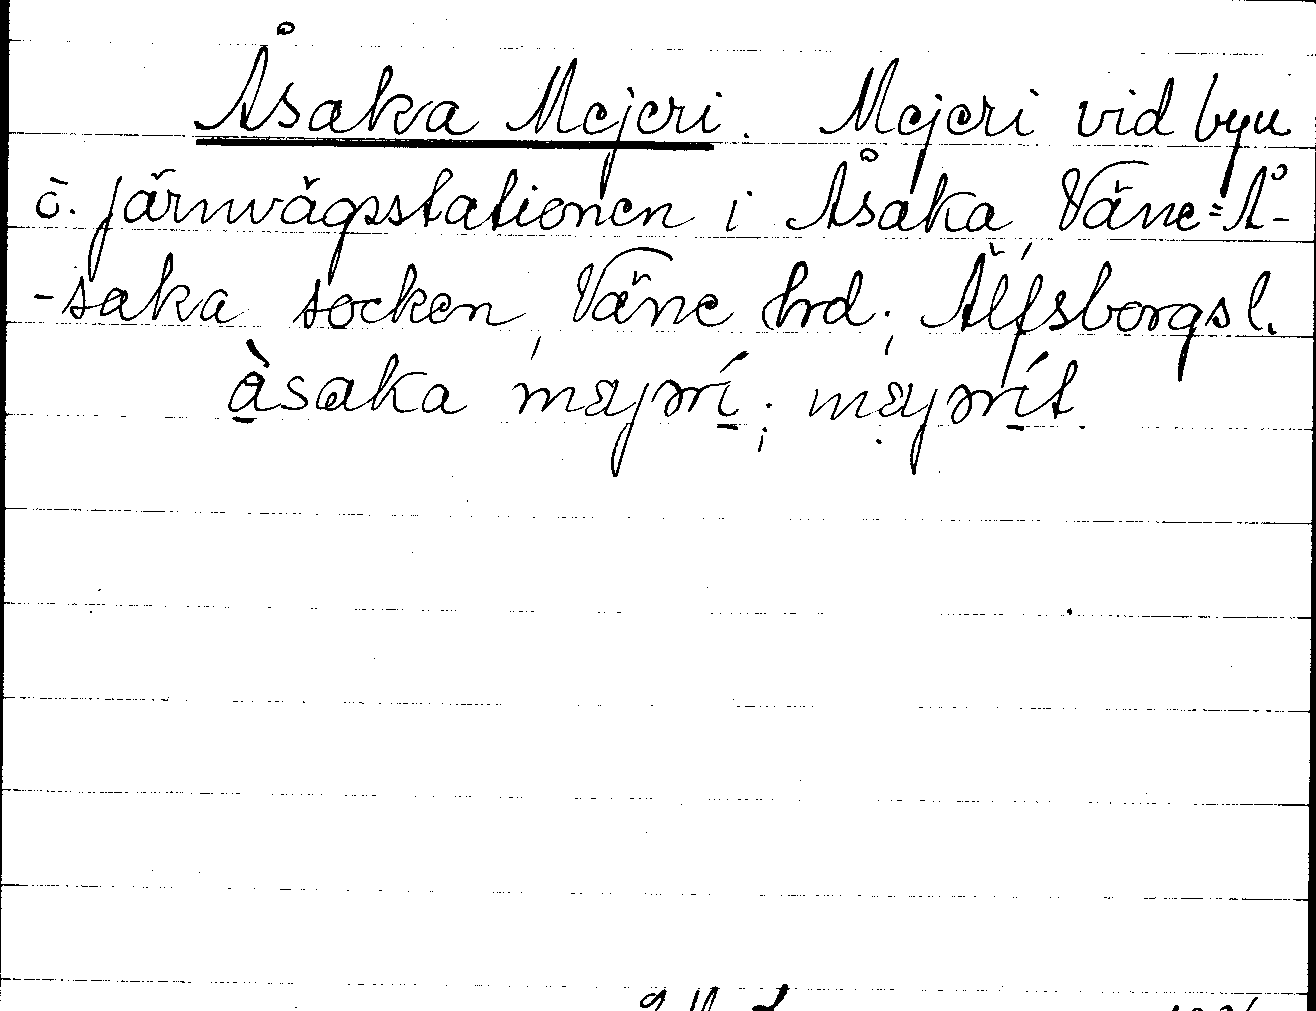 Åsaka Mejeri. Mejeri vid byn
o. järnvägsstationen i Åsaka, Väne=Å-
-saka socken, Väne hrd; Älfsborgs l.